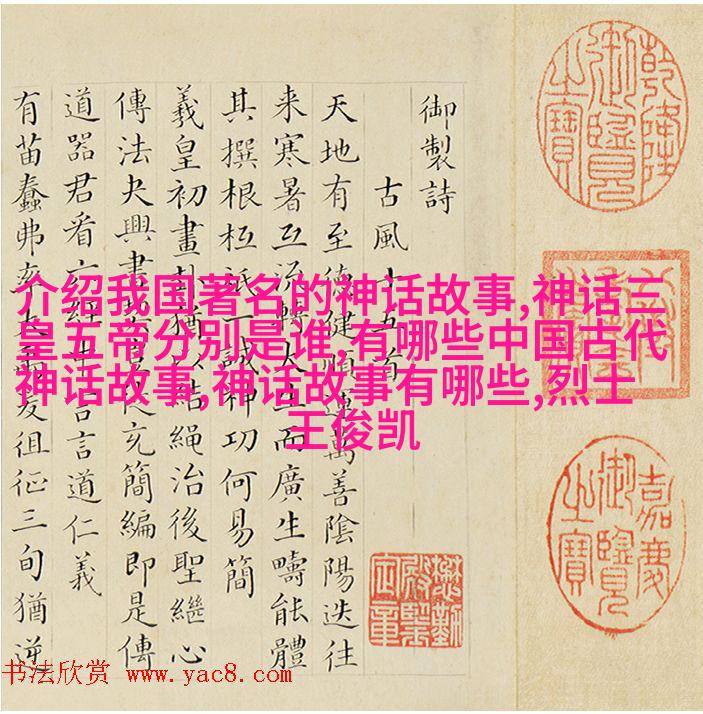 御製詩
古風十五首
天地有至德健順運萬善陰陽迭往
来寒暑互流轉大生而廣生疇能體
其撰根柢祗一誠神功何易簡
羲皇初畫卦猶以結繩治後聖繼心
傳法夬興書充簡編即是傳
道器君看六經中言言道仁義
有苗蠢弗率爰徂征三旬猶逆
乾隆御覽之寶
嘉慶御覽之寶
介绍我国著名的神话故事,神话三
皇五帝分别是谁,有哪些中国古代
神话故事,神话故事有哪些,烈士
王俊凯
书法欣赏 www.yac8.com